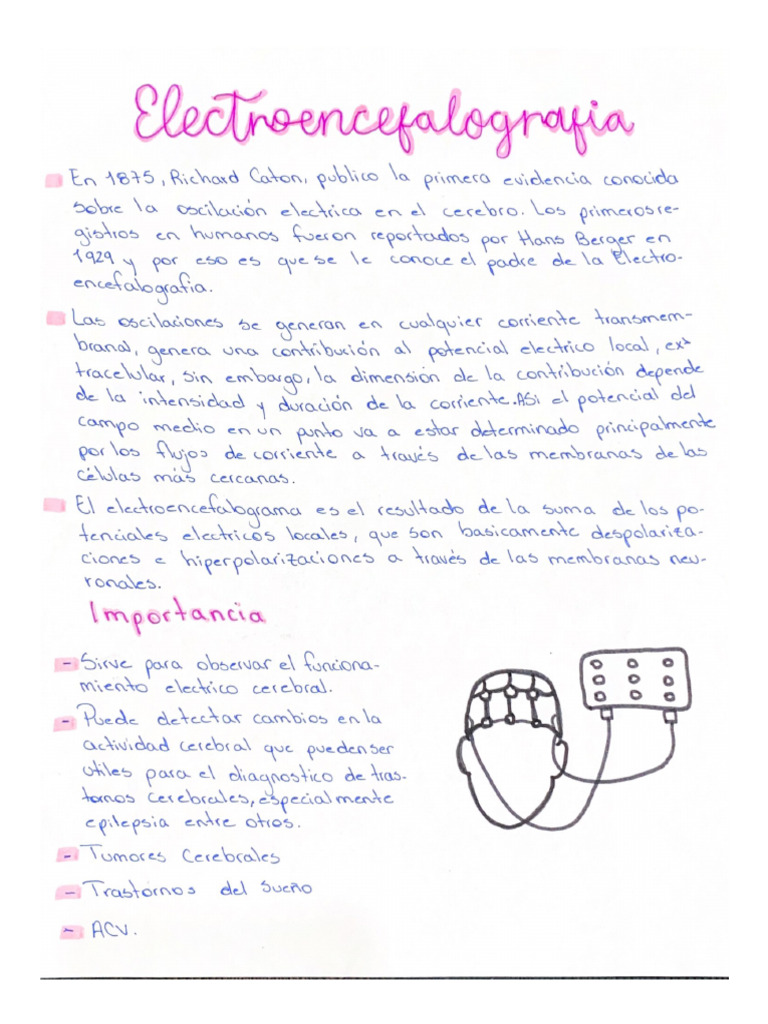 Electroencefalografia
En 1875, Richard Caton, publico la primera evidencia conocida
sobre la oscilación electrica en el cerebro. Los primeros re-
gistros en humanos fueron reportados por Hans Berger en
1929 y por eso es que se le conoce el padre de la Electro-
encefalografia.
Las oscilaciones se generan en cualquier corriente transmem-
branal, genera una contribución al potencial electrico local, ex
tracelular, sin embargo, la dimensión de la contribución depende
de la intensidad y duración de la corriente. Asi el potencial del
campo medio en un punto va a estar determinado principalmente
por los flujos de corriente a través de las membranas de las
células más cercanas.
El electroencefalograma es el resultado de la suma de los po-
tenciales electricos locales, que son basicamente despolariza-
ciones e hiperpolarizaciones a través de las membranas neu-
ronales.
Importancia
- Sirve para observar el funciona-
miento electrico cerebral.
- Puede detectar cambios en la
actividad cerebral que pueden ser
utiles para el diagnostico de tras-
tornos cerebrales, especialmente
epilepsia entre otros.
- Tumores Cerebrales
- Trastornos del sueño
- ACV.